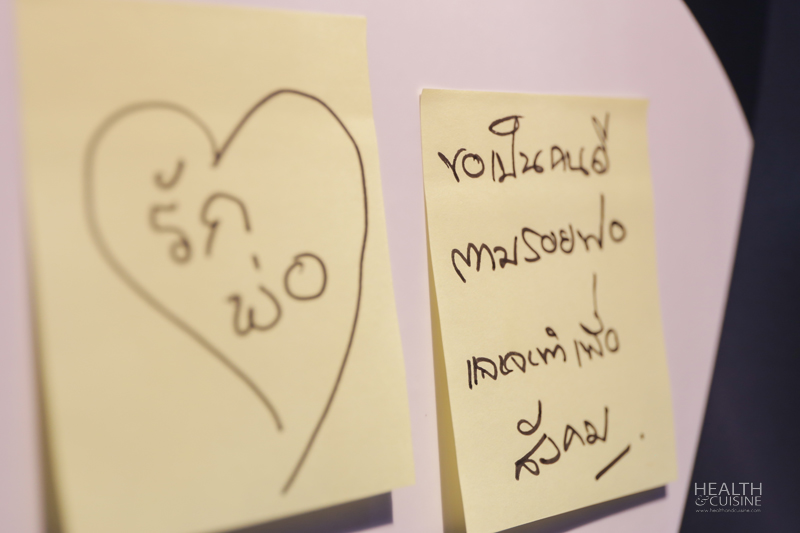 รัก
พ่อ
ขอเป็นคนดี
ตามรอยพ่อ
และทำเพื่อ
สังคม
HEALTH
&CUISINE
www.healthandcuisine.com